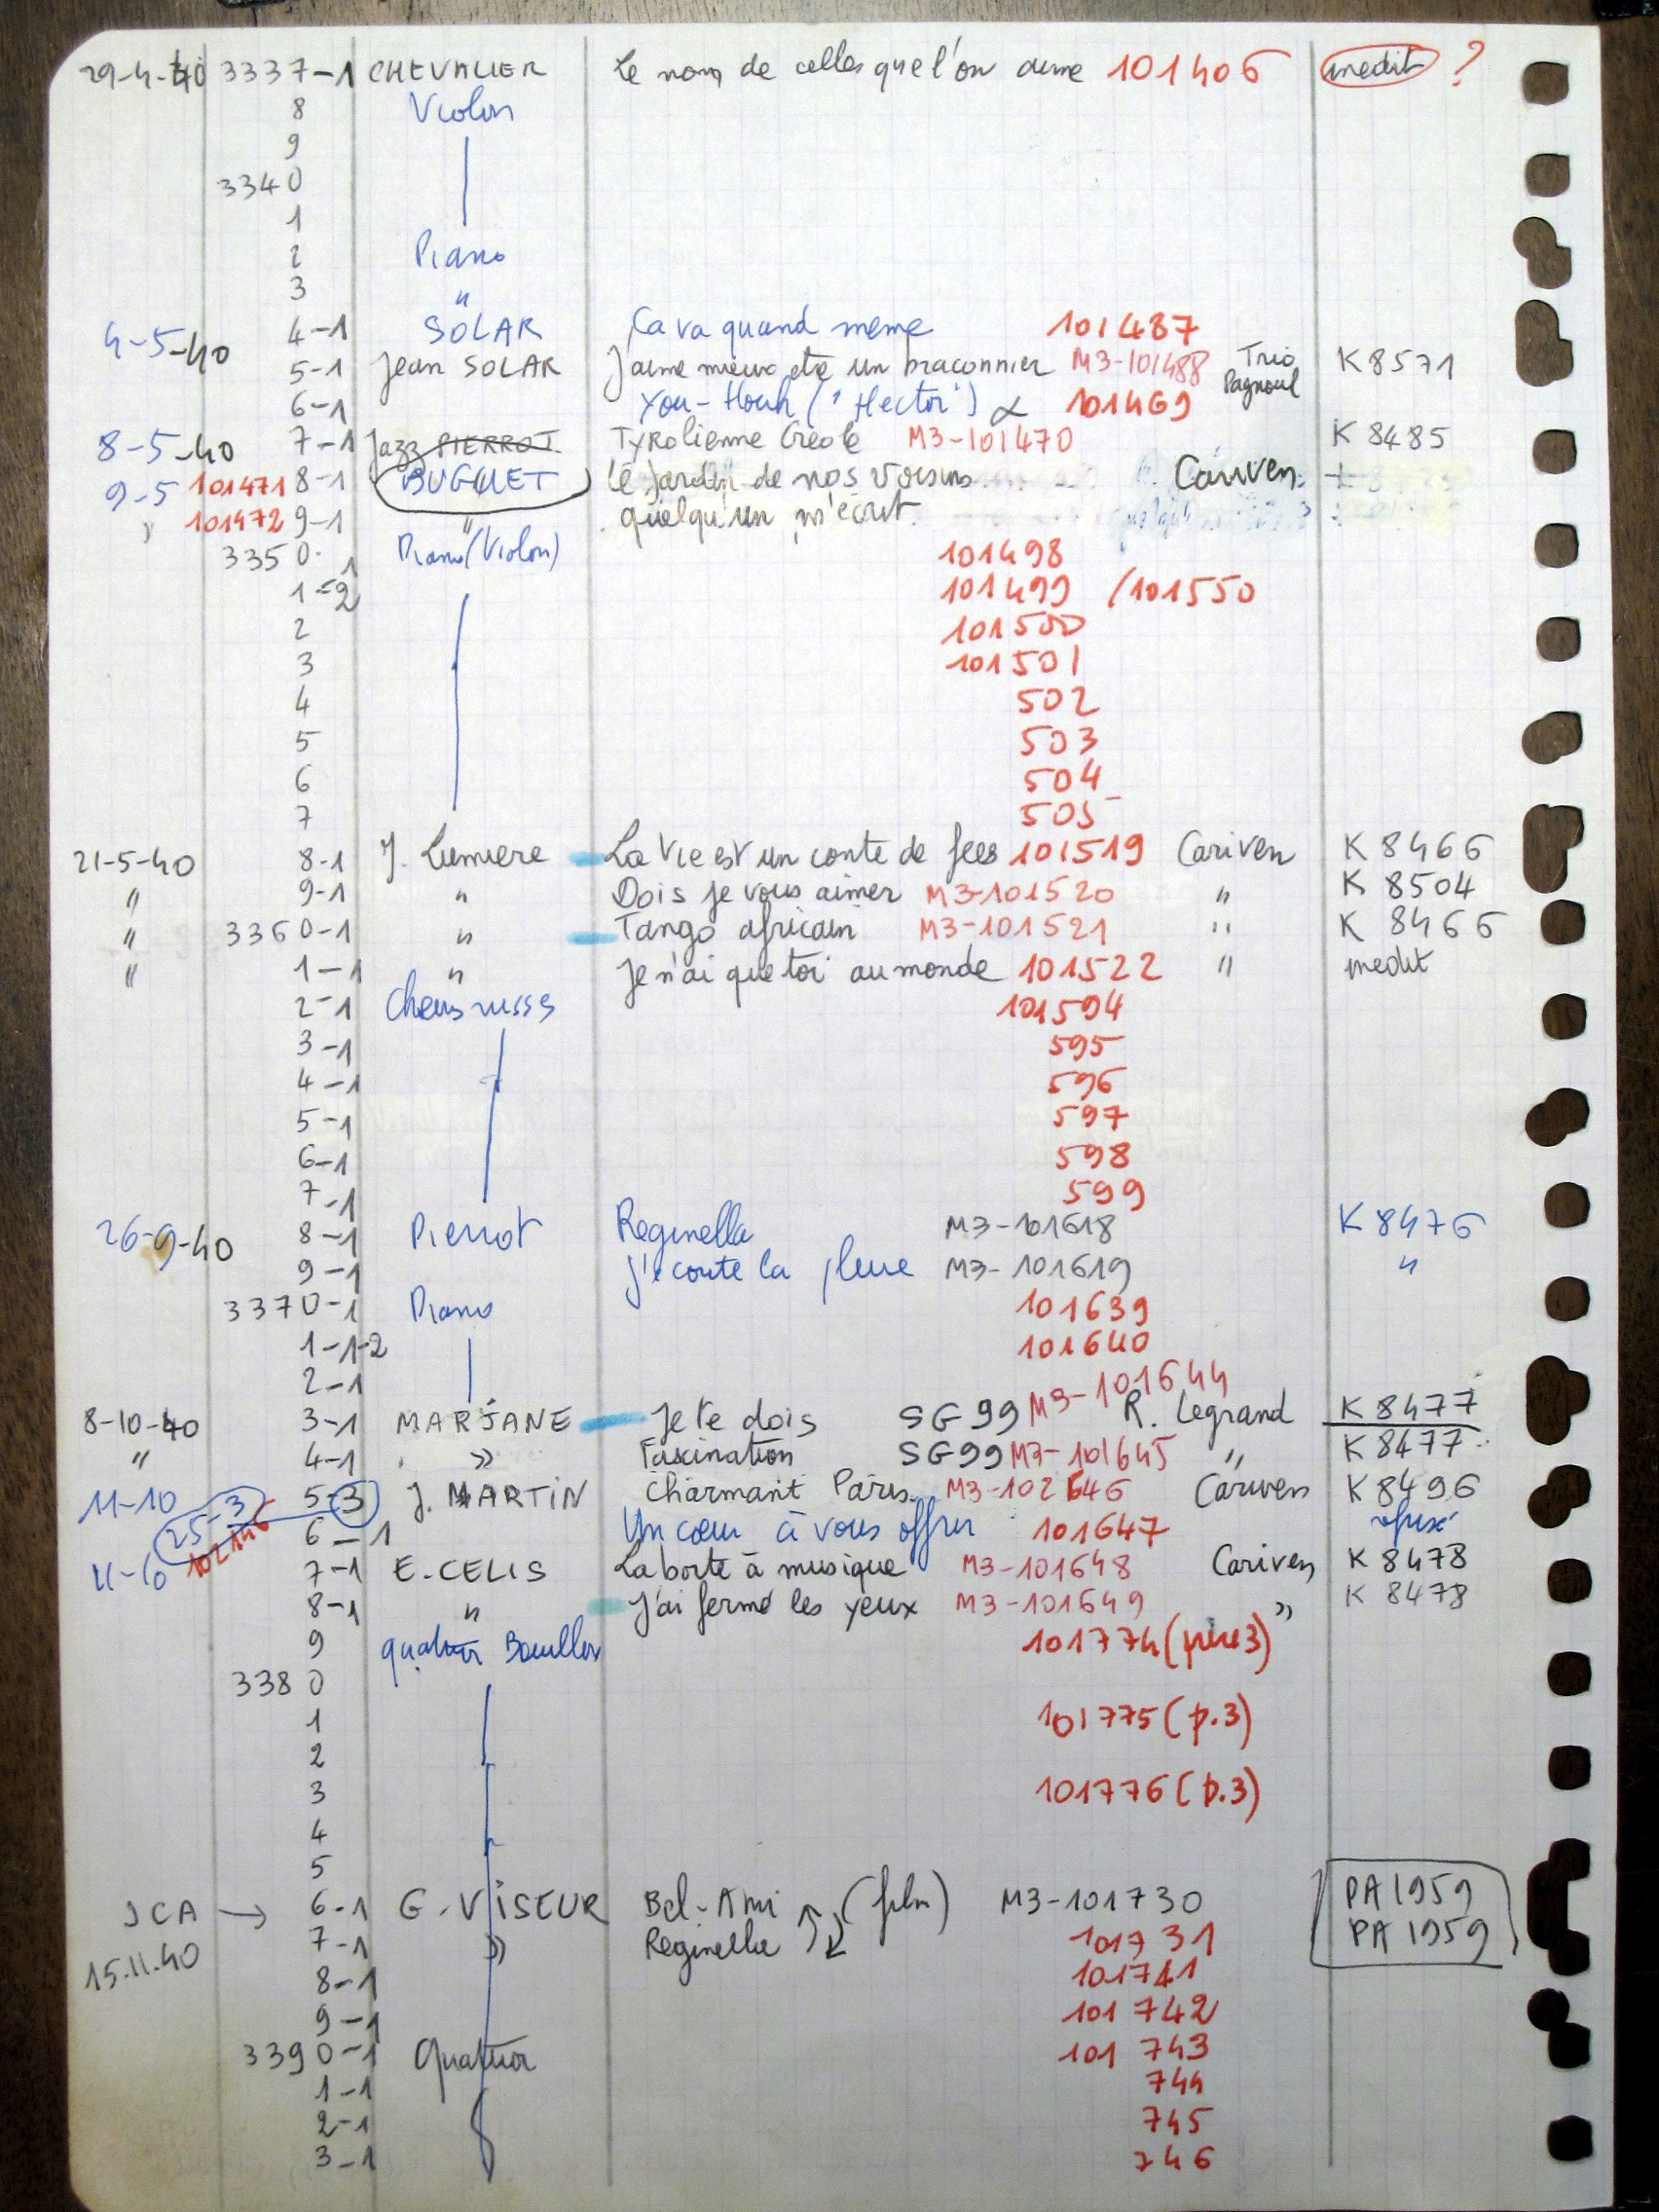 29-4-40 3337-1 CHEVALIER Le nom de celles que l'on aime 101406 inedit ?
8 Violon
9
3340
1
2 Piano
3 "
4-5-40 4-1 SOLAR Ca va quand meme 101487
5-1 Jean SOLAR J'aime mieux etre un braconnier M3-101488 Trio Pagnoul K8571
6-1 You-Houh ("Hector") 101469
8-5-40 7-1 Jazz PIERROT Tyrolienne Creole M3-101470 K 8485
9-5 101471 8-1 BUGUET Le Jardin de nos voisins Cariven
" 101472 9-1 " quelqu'un m'écrit
3350-1 Piano (Violon) 101498
1-2 101499 /101550
2 101500
3 101501
4 502
5 503
6 504
7 505
21-5-40 8-1 J. Lumiere La Vie est un conte de fees 101519 Cariven K 8466
" 9-1 " Dois je vous aimer M3-101520 " K 8504
" 3360-1 " Tango africain M3-101521 " K 8466
" 1-1 " Je n'ai que toi au monde 101522 " inedit
2-1 Chœurs russes 101594
3-1 595
4-1 596
5-1 597
6-1 598
7-1 599
26-9-40 8-1 Pierrot Reginella M3-101618 K 8476
9-1 J'écoute la pluie M3-101619 "
3370-1 Piano 101639
1-1-2 101640
2-1
8-10-40 3-1 MARJANE Je te dois SG99 M3-101644 R. Legrand K 8477
" 4-1 " Fascination SG99 M3-101645 " K 8477
11-10 5-3 J. MARTIN Charmant Paris M3-102646 Cariven K 8496
25-3 102146 6-1 Un cœur à vous offrir 101647 refusé
11-10 7-1 E. CELIS La boite à musique M3-101648 Cariven K 8478
8-1 " J'ai fermé les yeux M3-101649 " K 8478
9 quatuor Bouillon 101774 (pièce 3)
3380
1 101775 (p.3)
2
3 101776 (p.3)
4
5
JCA → 6-1 G. VISEUR Bel-Ami (film) M3-101730 PA 1959
7-1 " Reginella 101731 PA 1959
15.11.40 8-1 101741
9-1 101742
3390-1 Quatuor 101 743
1-1 744
2-1 745
3-1 746